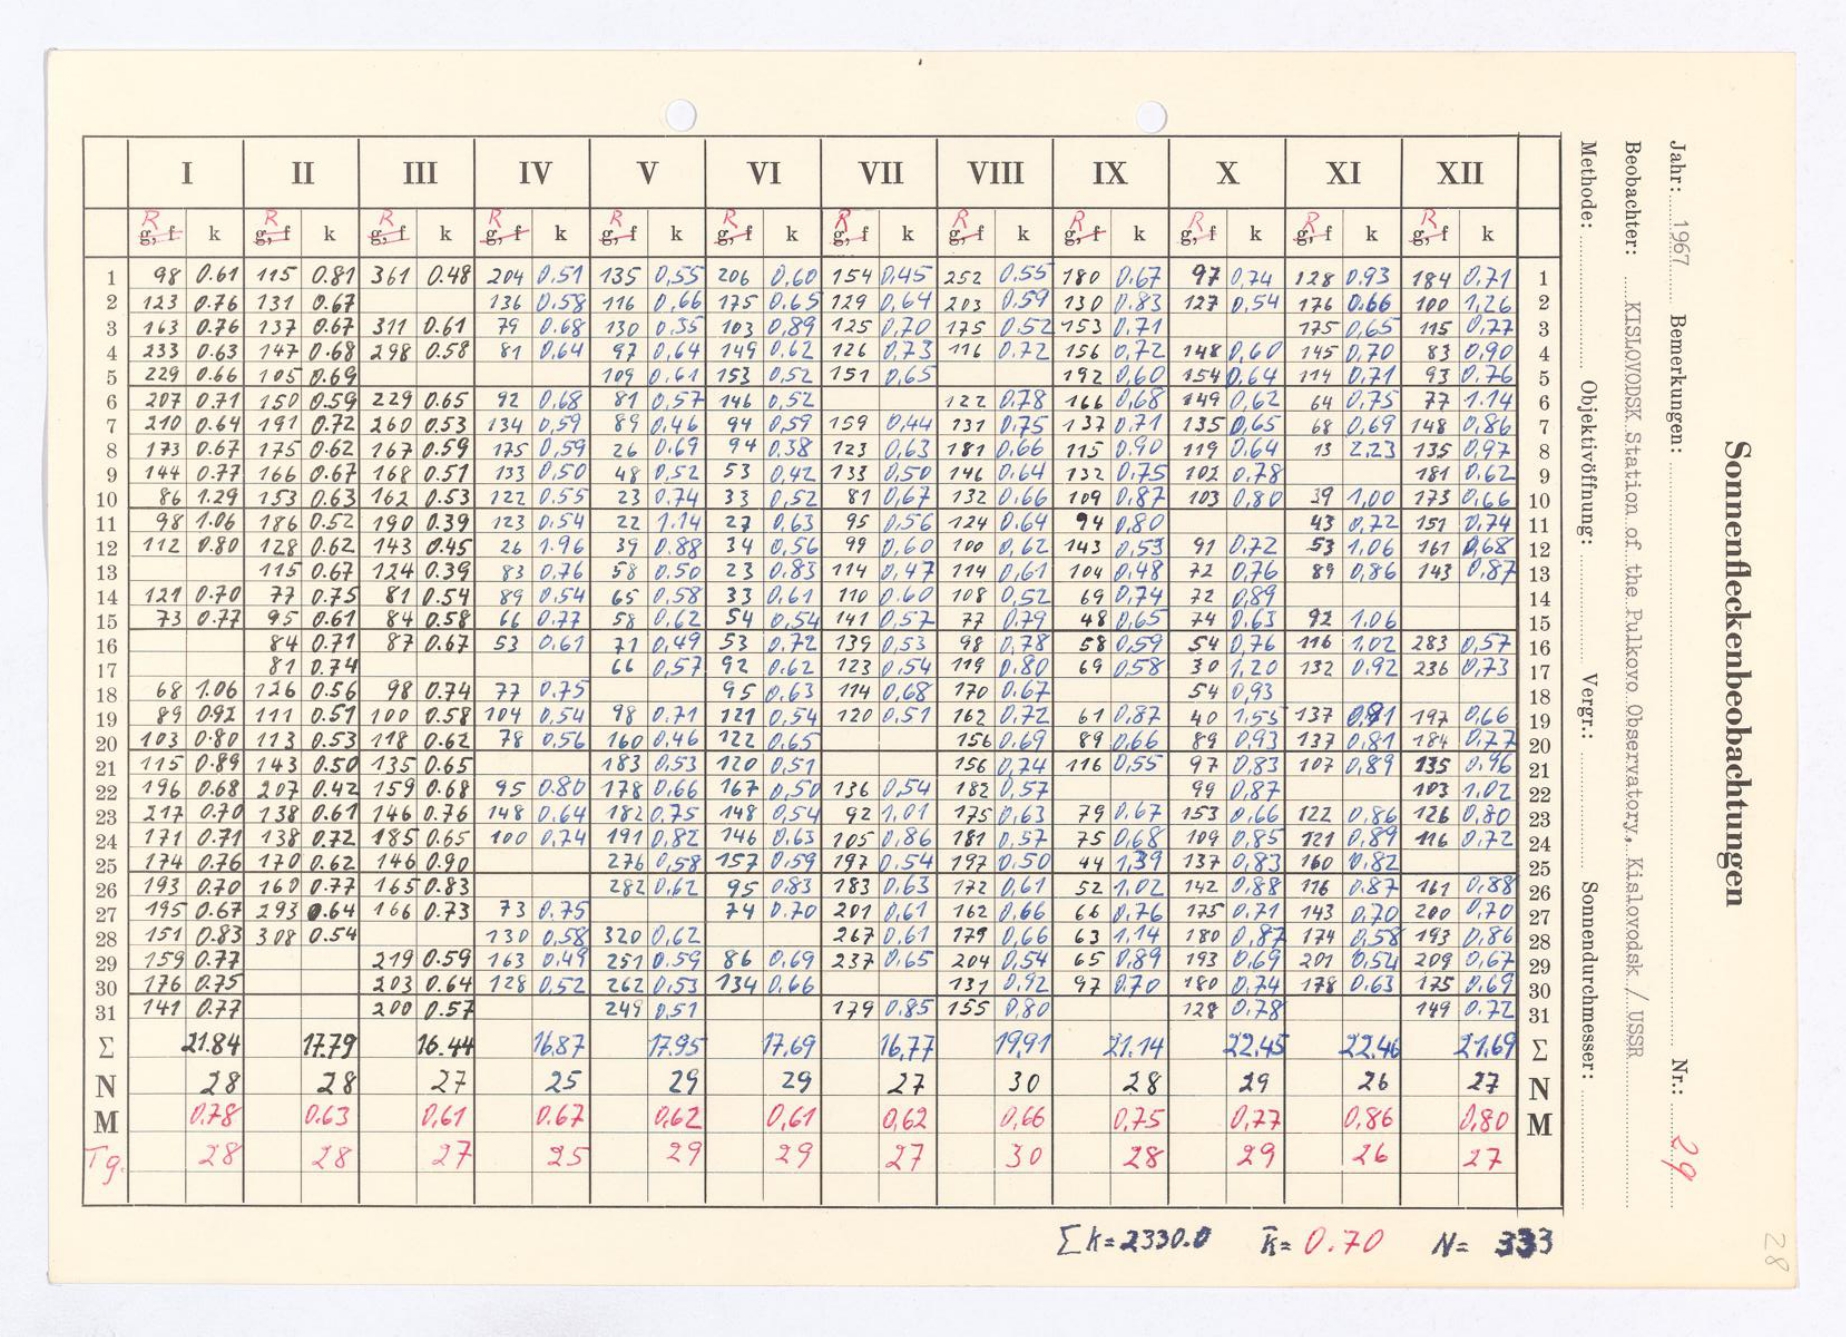 Sonnenfleckenbeobachtungen
Jahr: 1967 Bemerkungen: Nr.: 29
Beobachter: KISLOVODSK Station of the Pulkovo Observatory, Kislovodsk / USSR
Methode: Objektivöffnung: Vergr.: Sonnendurchmesser:
I II III IV V VI VII VIII IX X XI XII
R R R R R R R R R R R R
g, f k g, f k g, f k g, f k g, f k g, f k g, f k g, f k g, f k g, f k g, f k g, f k
1 98 0.61 115 0.81 361 0.48 204 0.51 135 0,55 206 0.60 154 0,45 252 0.55 180 0.67 97 0,74 128 0.93 184 0.71 1
2 123 0.76 131 0.67 136 0.58 116 0,66 175 0.65 129 0,64 203 0.59 130 0.83 127 0,54 176 0.66 100 1,26 2
3 163 0.76 137 0.67 311 0.61 79 0.68 130 0,35 103 0,89 125 0,70 175 0.52 153 0,71 175 0,65 115 0,77 3
4 233 0.63 147 0.68 298 0.58 81 0,64 97 0,64 149 0.62 126 0,73 116 0.72 156 0,72 148 0,60 145 0,70 83 0,90 4
5 229 0.66 105 0.69 109 0.61 153 0,52 151 0,65 192 0,60 154 0,64 114 0,71 93 0.76 5
6 207 0.71 150 0.59 229 0.65 92 0,68 81 0,57 146 0,52 122 0.78 166 0,68 149 0,62 64 0,75 77 1.14 6
7 210 0.64 191 0.72 260 0.53 134 0,59 89 0,46 94 0,59 159 0,44 131 0.75 137 0,71 135 0,65 68 0,69 148 0,86 7
8 173 0.67 175 0.62 167 0.59 175 0,59 26 0.69 94 0.38 123 0,63 181 0.66 115 0.90 119 0.64 13 2.23 135 0,97 8
9 144 0.77 166 0.67 168 0.51 133 0,50 48 0,52 53 0,42 133 0,50 146 0.64 132 0.75 102 0,78 181 0.62 9
10 86 1.29 153 0.63 162 0.53 122 0.55 23 0.74 33 0,52 81 0,67 132 0.66 109 0.87 103 0,80 39 1,00 173 0,66 10
11 98 1.06 186 0.52 190 0.39 123 0.54 22 1.14 27 0,63 95 0,56 124 0.64 94 0,80 43 0,72 151 0,74 11
12 112 0.80 128 0.62 143 0.45 26 1.96 39 0.88 34 0,56 99 0,60 100 0,62 143 0,53 91 0.72 53 1,06 161 0,68 12
13 115 0.67 124 0.39 83 0,76 58 0.50 23 0.83 114 0,47 114 0,61 104 0,48 72 0,76 89 0,86 143 0,87 13
14 121 0.70 77 0.75 81 0.54 89 0,54 65 0,58 33 0.61 110 0.60 108 0,52 69 0,74 72 0,89 14
15 73 0.77 95 0.61 84 0.58 66 0.77 58 0,62 54 0,54 141 0,57 77 0.79 48 0,65 74 0.63 92 1.06 15
16 84 0.71 87 0.67 53 0.61 71 0,49 53 0.72 139 0,53 98 0,78 58 0,59 54 0,76 116 1,02 283 0,57 16
17 81 0.74 66 0,57 92 0.62 123 0,54 119 0.80 69 0,58 30 1,20 132 0.92 236 0,73 17
18 68 1.06 126 0.56 98 0.74 77 0.75 95 0.63 114 0,68 170 0.67 54 0,93 18
19 89 0.92 111 0.51 100 0.58 104 0,54 98 0.71 121 0,54 120 0,51 162 0.72 61 0,87 40 1,55 137 0,81 197 0,66 19
20 103 0.80 113 0.53 118 0.62 78 0,56 160 0,46 122 0.65 156 0.69 89 0,66 89 0,93 137 0,81 184 0,77 20
21 115 0.89 143 0.50 135 0.65 183 0,53 120 0,51 156 0,74 116 0,55 97 0,83 107 0,89 135 0.96 21
22 196 0.68 207 0.42 159 0.68 95 0.80 178 0,66 167 0,50 136 0,54 182 0,57 99 0,87 103 1.02 22
23 217 0.70 138 0.61 146 0.76 148 0,64 182 0.75 148 0,54 92 1,01 175 0,63 79 0.67 153 0,66 122 0,86 126 0,80 23
24 171 0.71 138 0.72 185 0.65 100 0,74 191 0,82 146 0,63 105 0,86 181 0.57 75 0,68 109 0,85 121 0,89 116 0,72 24
25 174 0.76 170 0.62 146 0.90 276 0,58 157 0,59 197 0,54 197 0.50 44 1,39 137 0,83 160 0.82 25
26 193 0.70 160 0.77 165 0.83 282 0,62 95 0,83 183 0,63 172 0,61 52 1,02 142 0,88 116 0.87 161 0,88 26
27 195 0.67 293 0.64 166 0.73 73 0.75 74 0.70 201 0,61 162 0,66 66 0,76 175 0.71 143 0,70 200 0,70 27
28 151 0.83 308 0.54 130 0,58 320 0,62 267 0,61 179 0,66 63 1,14 180 0,87 174 0,58 193 0,86 28
29 159 0.77 219 0.59 163 0,49 251 0.59 86 0,69 237 0,65 204 0,54 65 0,89 193 0,69 201 0,54 209 0,67 29
30 176 0.75 203 0.64 128 0,52 262 0,53 134 0,66 131 0,92 97 0.70 180 0,74 178 0.63 175 0.69 30
31 141 0.77 200 0.57 249 0,51 179 0,85 155 0,80 128 0,78 149 0.72 31
Σ 21.84 17.79 16.44 16,87 17.95 17,69 16,77 19,91 21.14 22,45 22,46 21.69 Σ
N 28 28 27 25 29 29 27 30 28 29 26 27 N
M 0.78 0.63 0,61 0.67 0,62 0,61 0,62 0,66 0,75 0,77 0,86 0,80 M
Tg. 28 28 27 25 29 29 27 30 28 29 26 27
Σk = 2330.0 k̄ = 0.70 N = 333
28